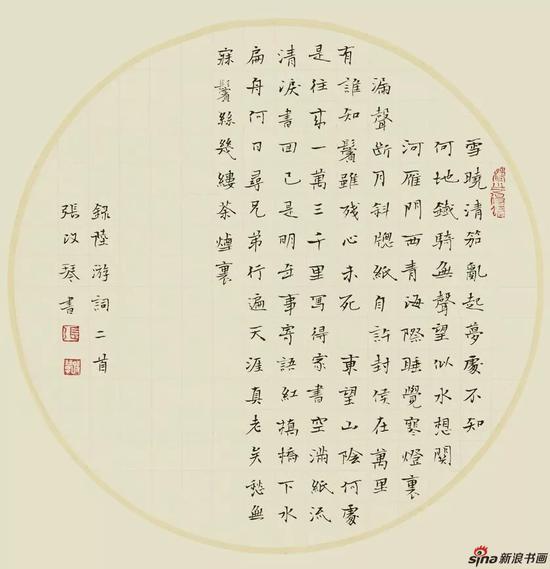 雪曉清笳亂起夢處不知
何地鐵騎無聲望似水想關
河雁門西青海際睡覺寒燈裏
漏聲斷月斜牕紙自許封侯在萬里
有誰知鬢雖殘心未死 東望山陰何處
是往來一萬三千里寫得家書空滿紙流
清淚書回已是明年事寄語紅橋橋下水
扁舟何日尋兄弟行遍天涯真老矣愁無
寐鬢絲幾縷茶煙裏
錄陸游詞二首
張改琴書
sina新浪书画